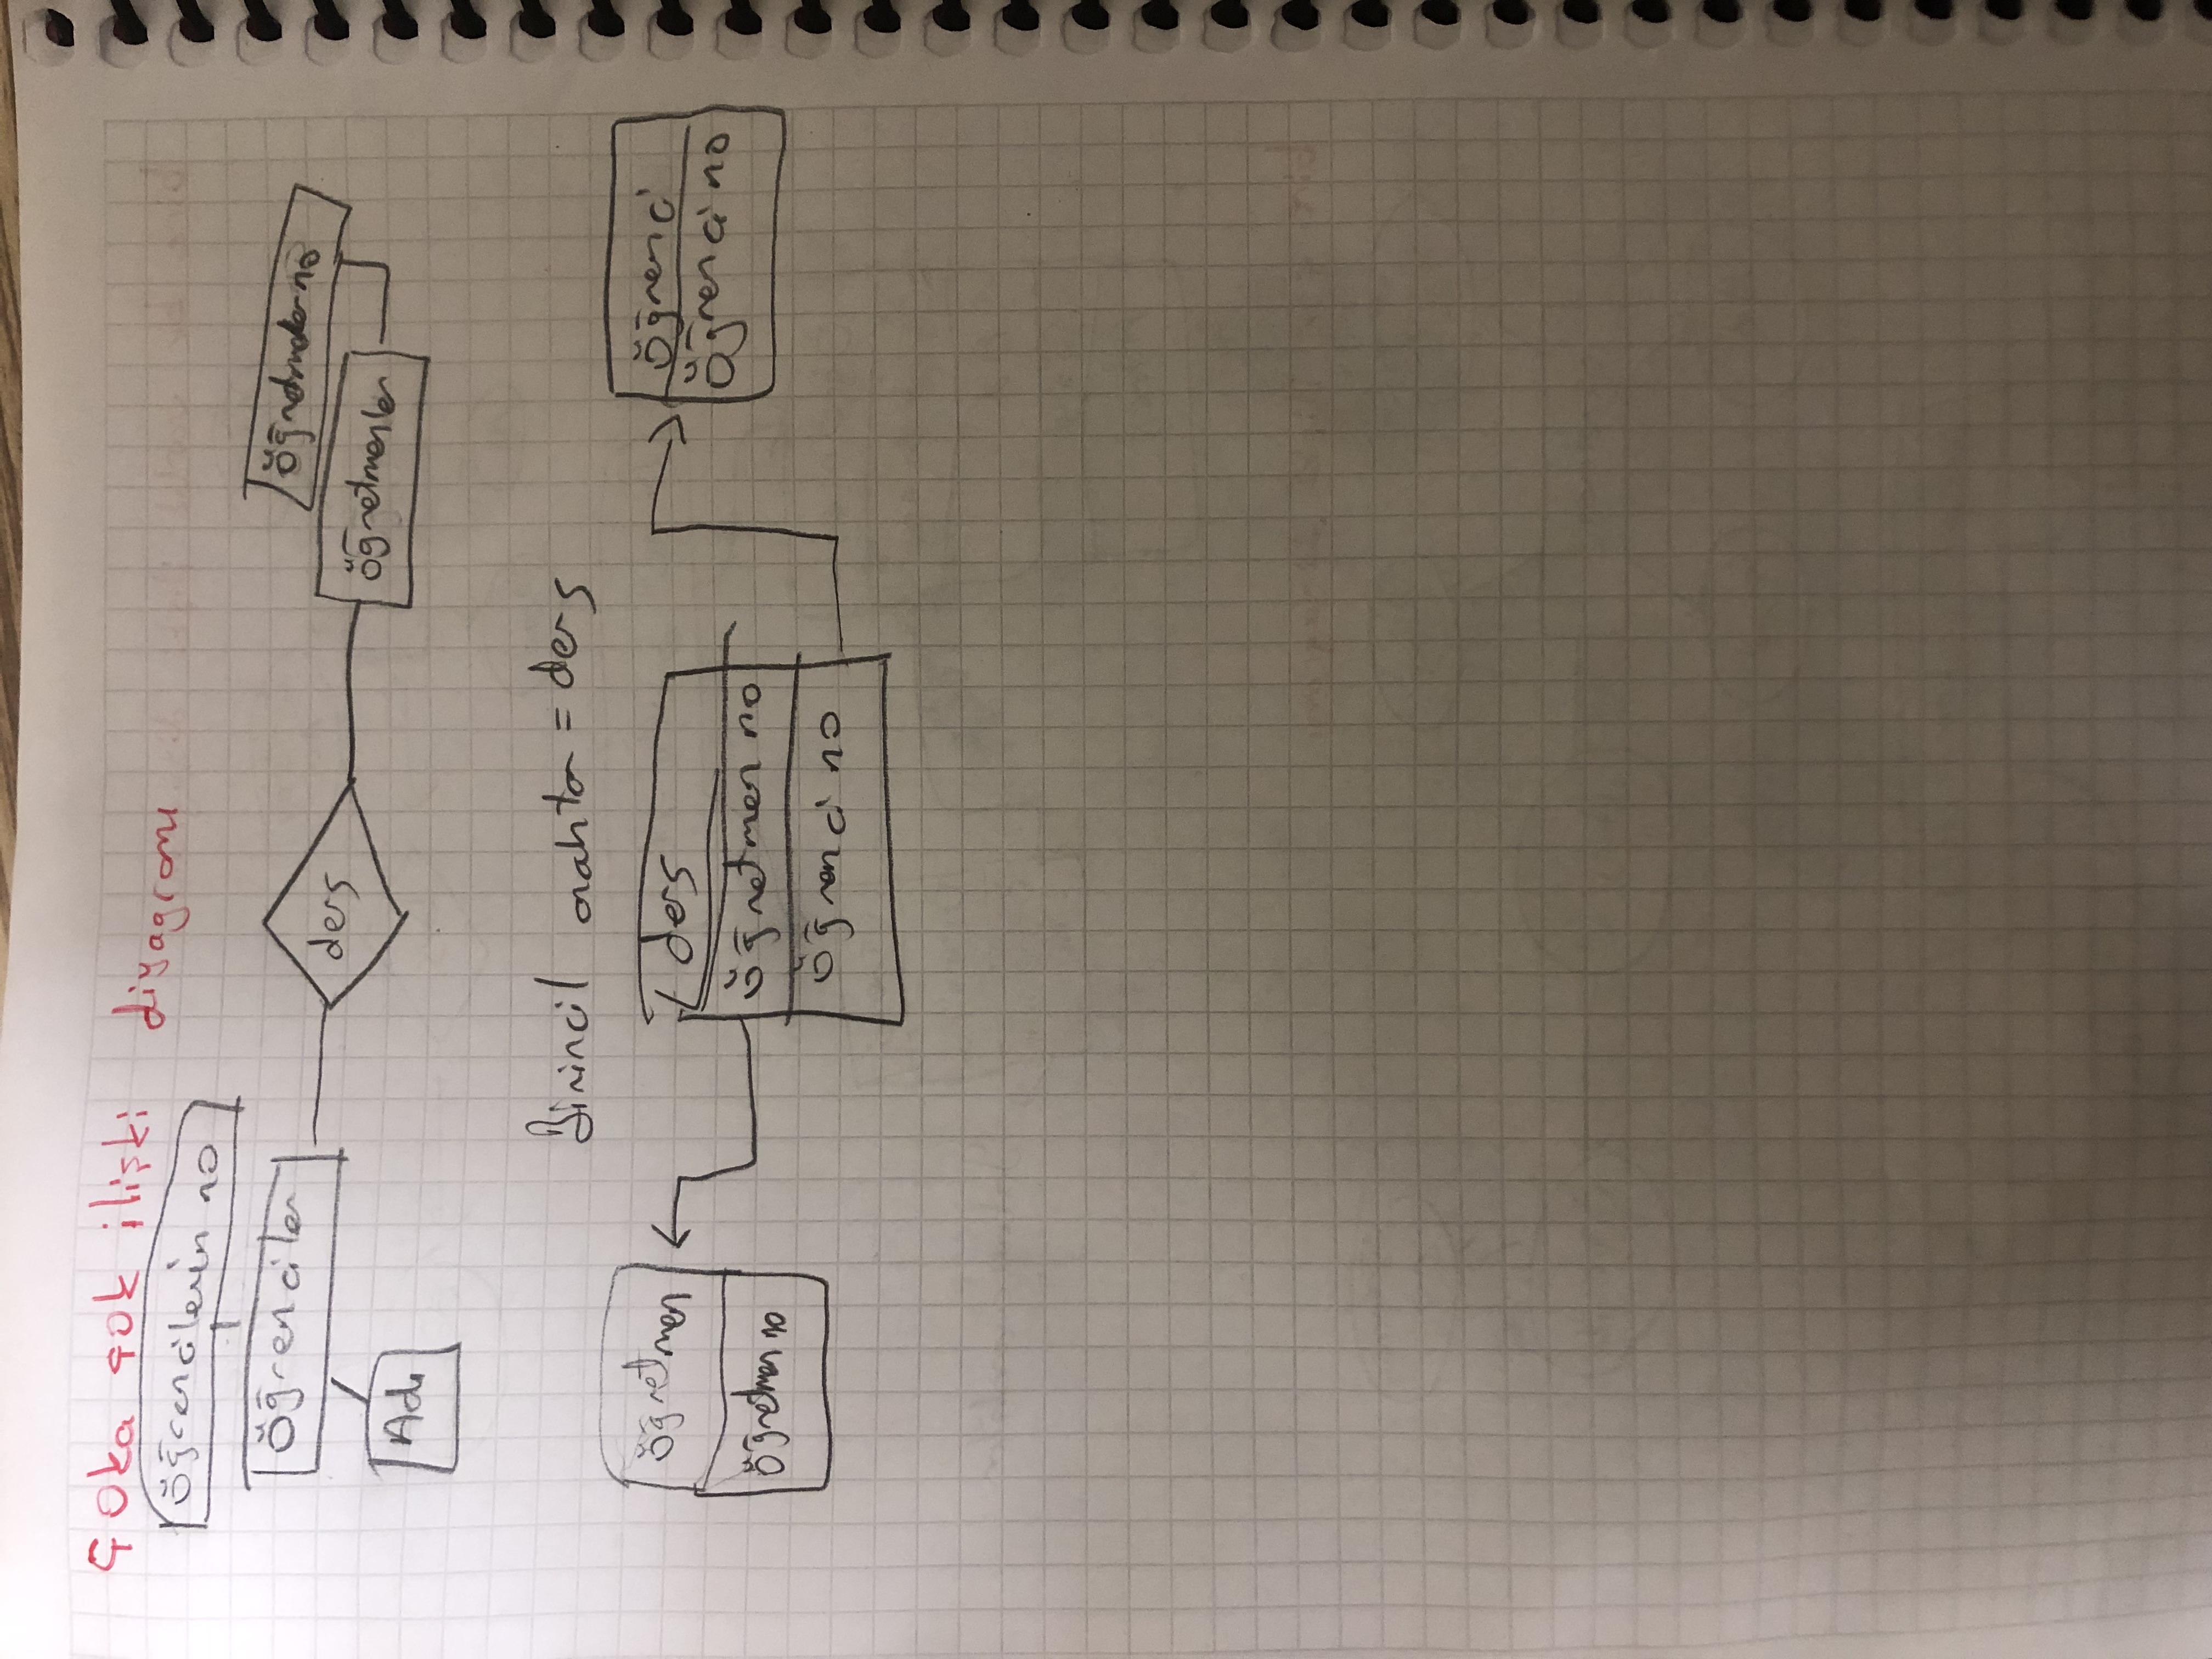 çoka çok ilişki diyagramı
Öğrencilerin no
Öğrenciler
ders
Öğretmenler no
Öğretmenler
Adı
Birincil anahtar = ders
Öğretmen
Öğretmen no
ders
Öğretmen no
Öğrenci no
Öğrenci
Öğrenci no